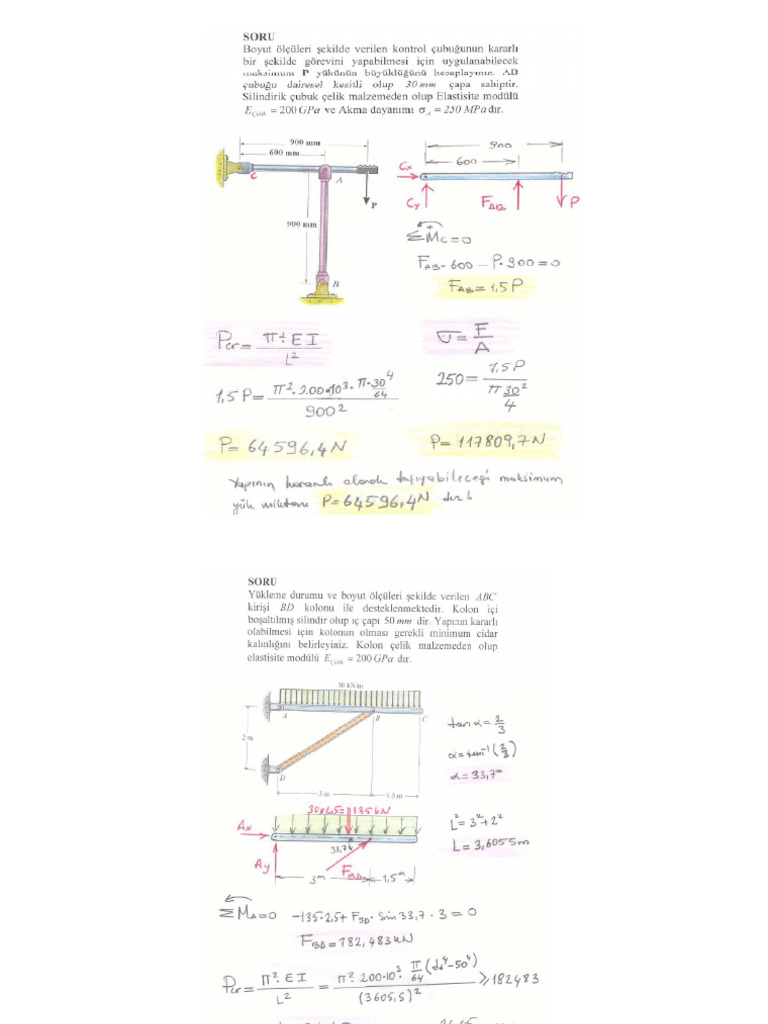 SORU
Boyut ölçüleri şekilde verilen kontrol çubuğunun kararlı
bir şekilde görevini yapabilmesi için uygulanabilecek
maksimum P yükünün büyüklüğünü hesaplayınız. AD
çubuğu dairesel kesitli olup 30 mm çapa sahiptir.
Silindirik çubuk çelik malzemeden olup Elastisite modülü
E_Çelik = 200 GPa ve Akma dayanımı σ_A = 250 MPa dır.
900 mm
600 mm
C
A
P
900 mm
B
900
600
Cx
Cy
F_AB
P
+
ΣMc=0
F_AB·600 – P·900=0
F_AB=1,5P
Pcr= π²·EI / L²
σ= F / A
1,5P= π²·200·10³·π·30⁴/64 / 900²
250= 1,5P / π30²/4
P= 64596,4N
P= 117809,7N
Yapının kararlı olarak taşıyabileceği maksimum
yük miktarı P=64596,4N dır.
SORU
Yükleme durumu ve boyut ölçüleri şekilde verilen ABC
kirişi BD kolonu ile desteklenmektedir. Kolon içi
boşaltılmış silindir olup iç çapı 50 mm dir. Yapının kararlı
olabilmesi için kolonun olması gerekli minimum cidar
kalınlığını belirleyiniz. Kolon çelik malzemeden olup
elastisite modülü E_Çelik = 200 GPa dır.
30 kN/m
A
B
C
2 m
D
3 m
1.5 m
tanα= 2/3
α=tan⁻¹(2/3)
α=33,7°
30×4,5=135kN
Ax
Ay
33,7
F_BD
3m
1,5m
L²=3²+2²
L=3,6055m
ΣMA=0
-135·2,5+F_BD·Sin33,7·3=0
F_BD=182,483kN
Pcr= π²·EI / L² = π²·200·10³·π/64(dd⁴-50⁴) / (3605,5)² ≥182483